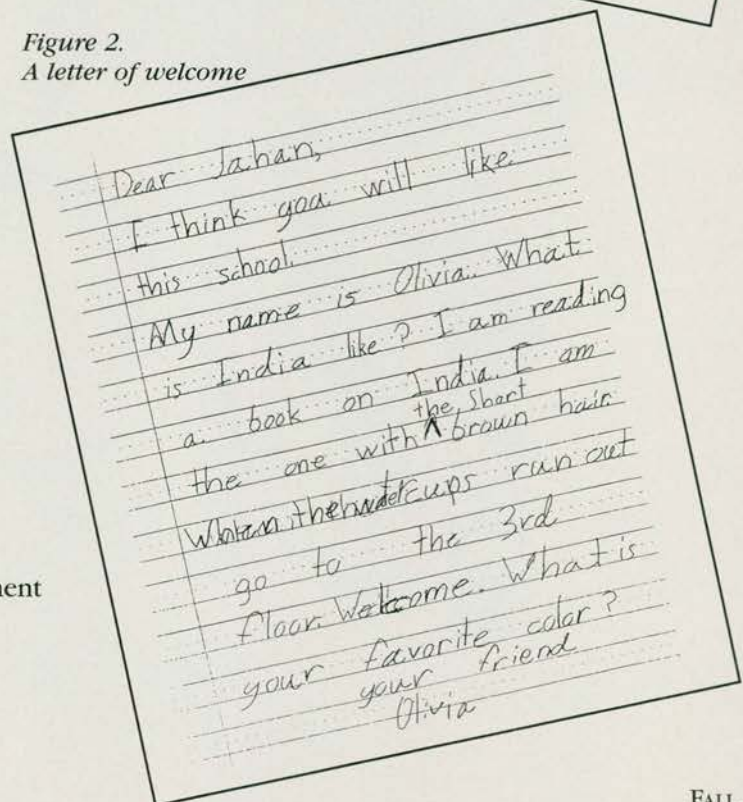 Figure 2.
A letter of welcome
Dear Jahan,
I think you will like
this school.
My name is Olivia. What
is India like? I am reading
a book on India. I am
the short
the one with ^ brown hair
When the water cups run out
go to the 3rd
floor. Welcome. What is
your favorite color?
your friend
Olivia
ment
FALL